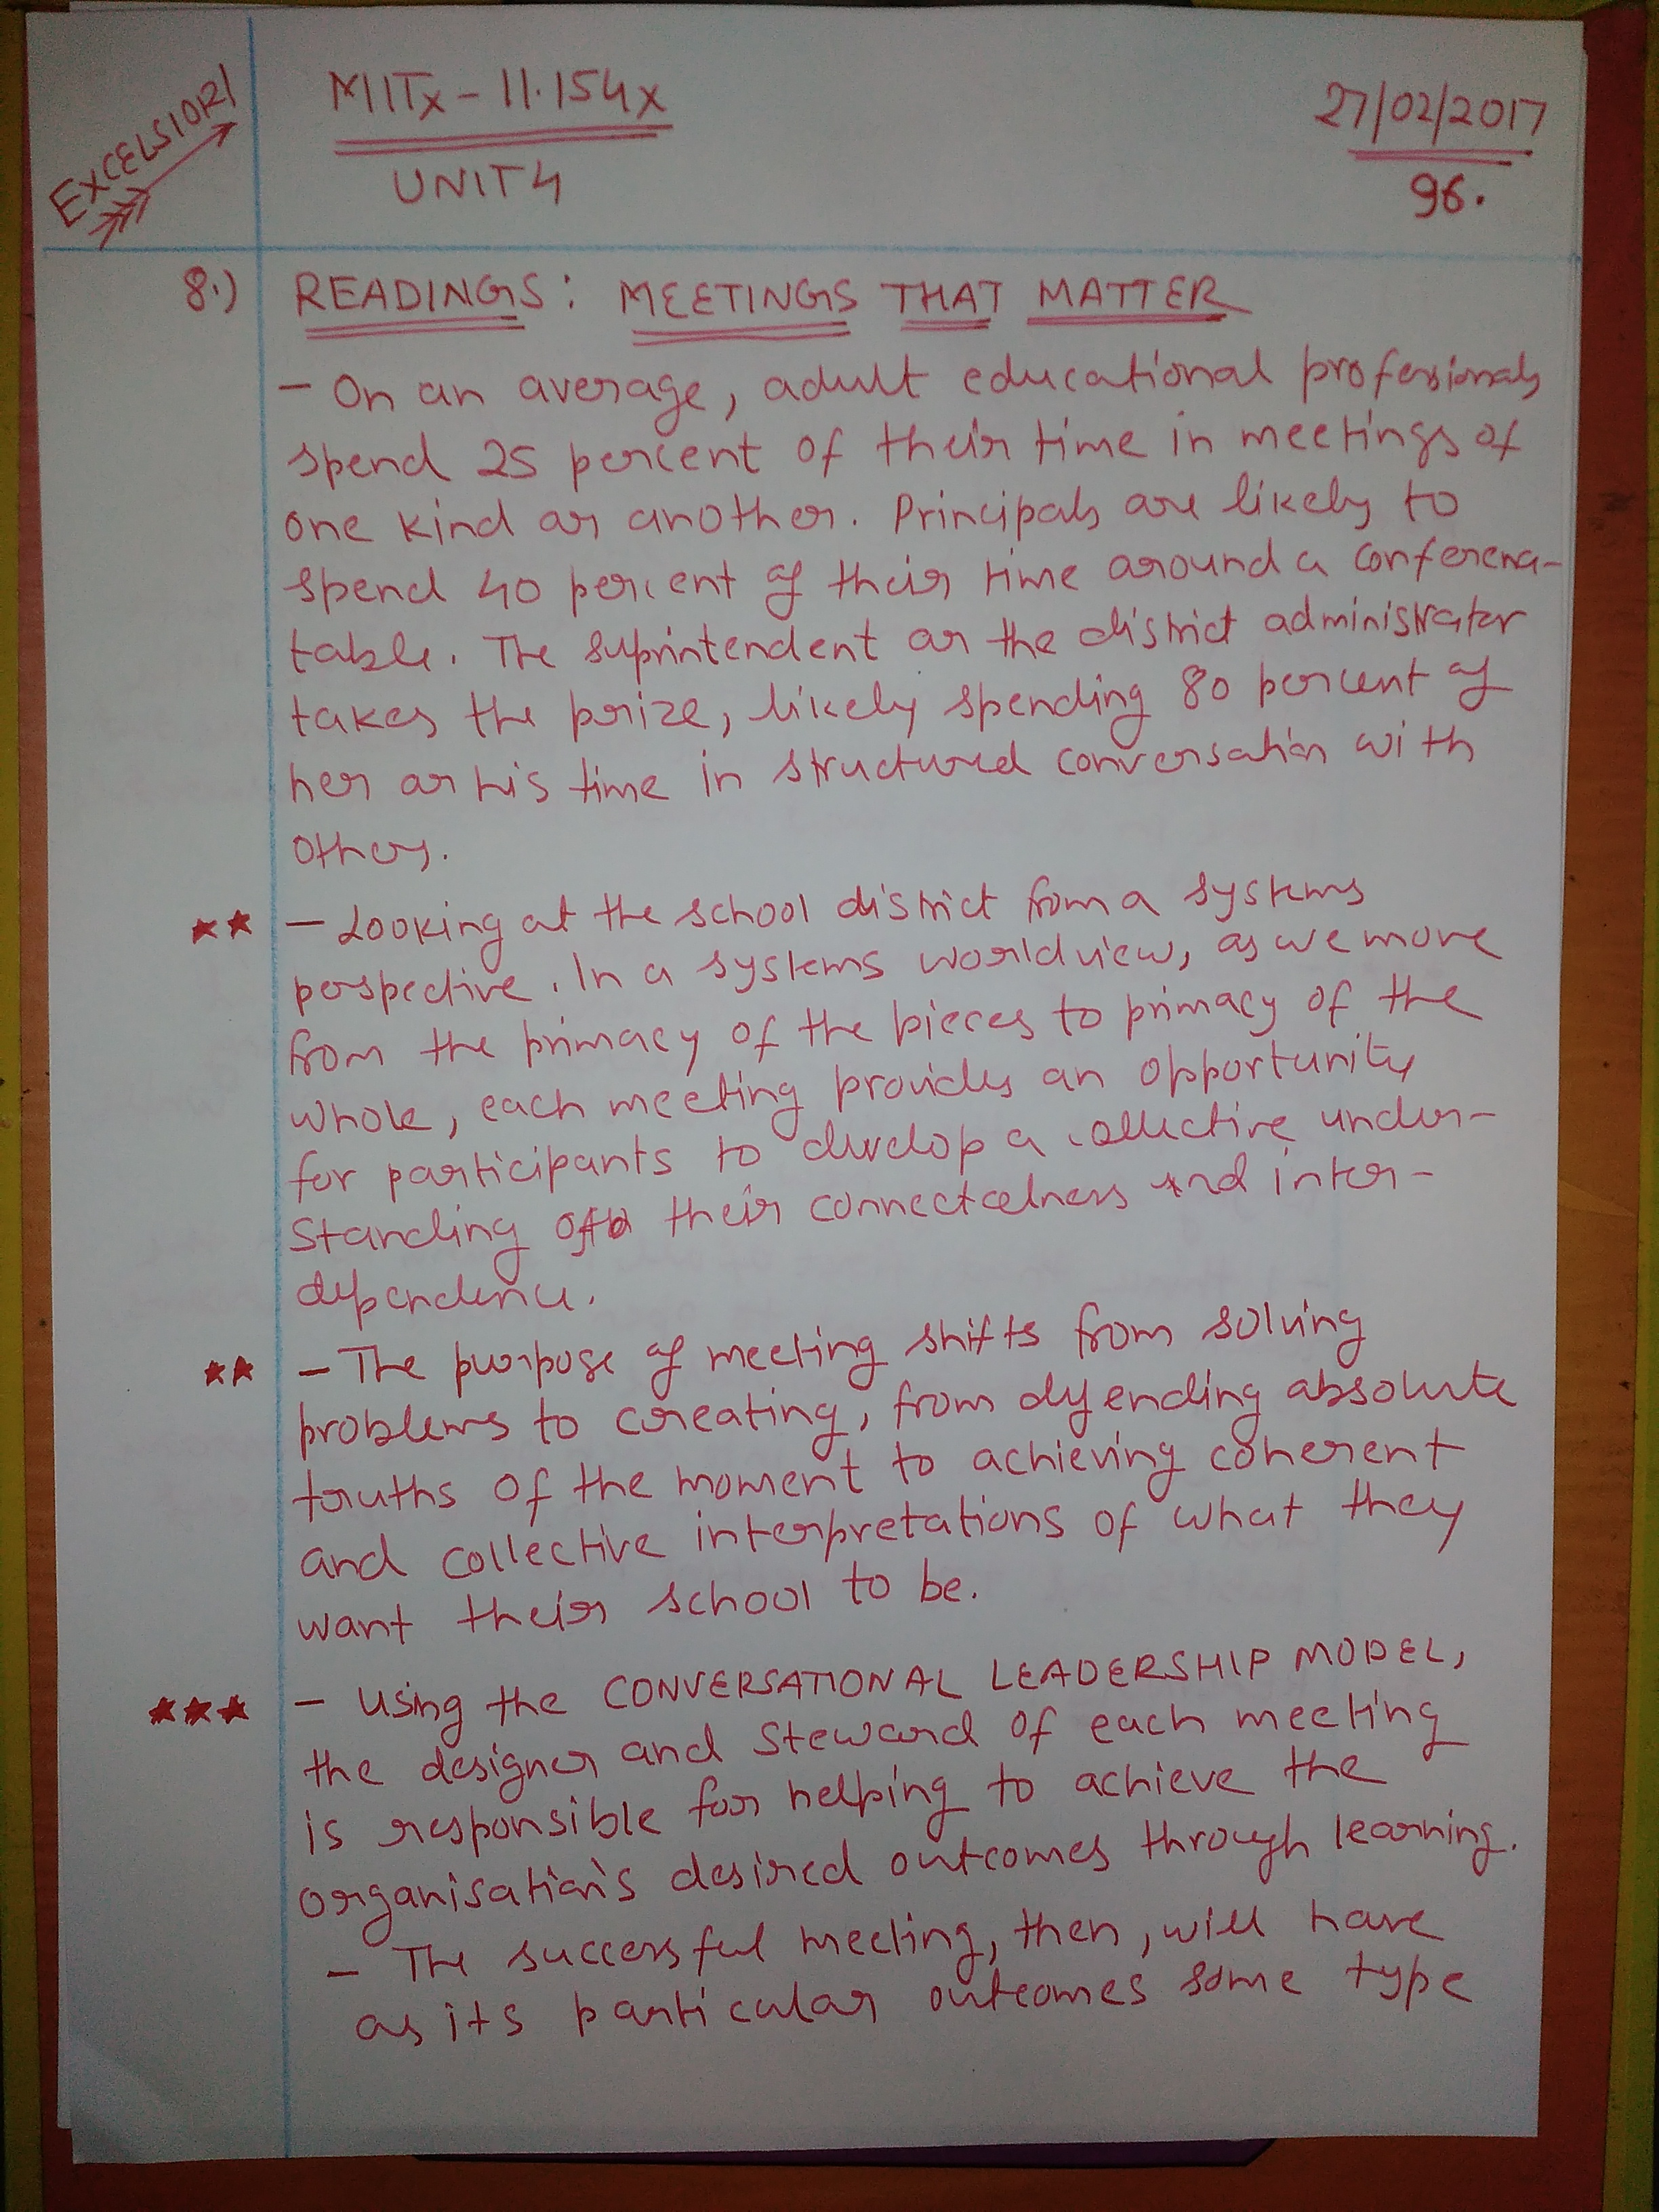 EXCELSIOR!
MITx - 11.154x
UNIT 4
27/02/2017
96.
8.) READINGS: MEETINGS THAT MATTER
- On an average, adult educational professionals
spend 25 percent of their time in meetings of
one kind or another. Principals are likely to
spend 40 percent of their time around a conference-
table. The suprintendent or the district administrator
takes the prize, likely spending 80 percent of
her or his time in structured conversation with
others.
★★ - Looking at the school district from a systems
perspective. In a systems worldview, as we move
from the primacy of the pieces to primacy of the
whole, each meeting provides an opportunity
for participants to develop a collective under-
standing of their connectedness and inter-
dependence.
★★ - The purpose of meeting shifts from solving
problems to creating, from defending absolute
truths of the moment to achieving coherent
and collective interpretations of what they
want their school to be.
★★★ - Using the CONVERSATIONAL LEADERSHIP MODEL,
the designer and steward of each meeting
is responsible for helping to achieve the
organisation's desired outcomes through learning.
- The successful meeting, then, will have
as its particular outcomes some type